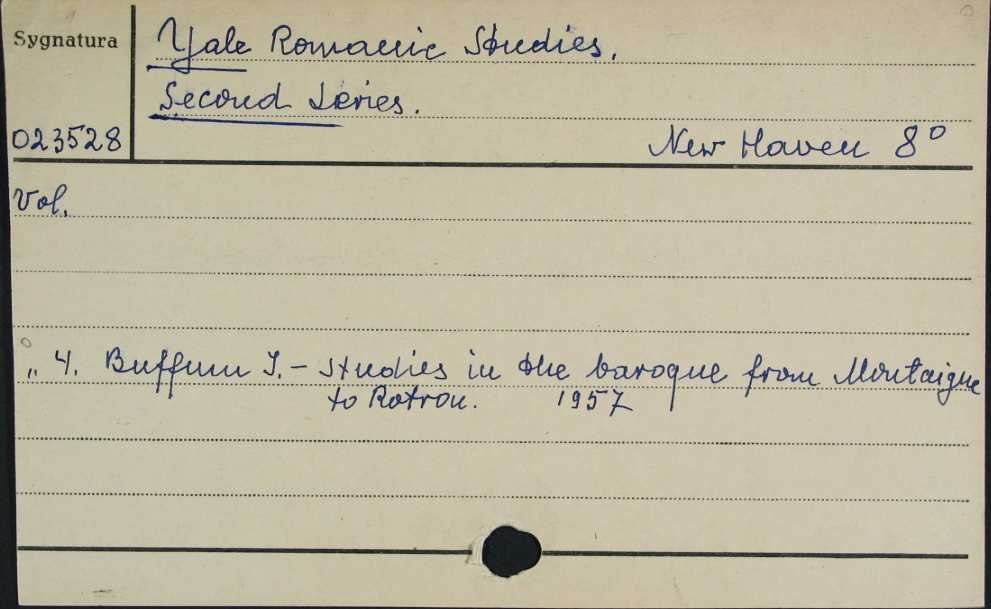 Sygnatura
Yale Romanic Studies.
Second Series.
023528
New Haven 8°
Vol.
„ 4. Buffum I. - Studies in the baroque from Montaigne
to Rotrou. 1957